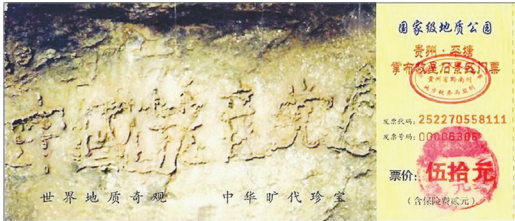 中国共产党
世界地质奇观 中华旷代珍宝
国家级地质公园
贵州·平塘
掌布藏字石景区门票
发票代码：252270558111
发票号码：00006306
票价：伍拾元
（含保险费贰元）